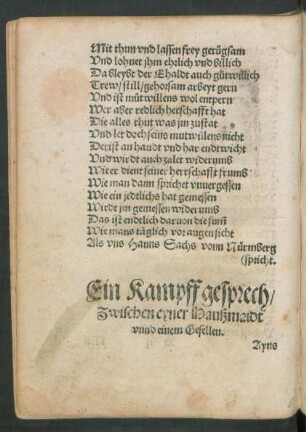 Mit thun vnd lassen frey gerügsam
Vnd lohnet jhn ehrlich vnd billich
Da bleybt der Ehaldt auch gütwillich
Trew/still/gehorsam arbeyt gern
Vnd ist mütwillens wol entpern
Wer aber redlich herschafft hat
Die alles thut was jm zustat
Vnd let doch seins mutwillens nicht
Der ist an haudt vnd har endtwicht
Vnd wirdt auch zalet widerumb
Wie er dient seiner herrschafft frumb
Wie man dann sprichet vnuergessen
Wie ein jedtlichs hat gemessen
Wirdt jm gemessen widerumb
Das ist endtlich daruon die sum
Wie mans täglich vor augen sicht
Als vns Hanns Sachs vonn Nürmberg
(spricht.
Ein Kampff gesprech/
Zwischen eyner Haußmaidt
vnnd einem Gesellen.
Ayns